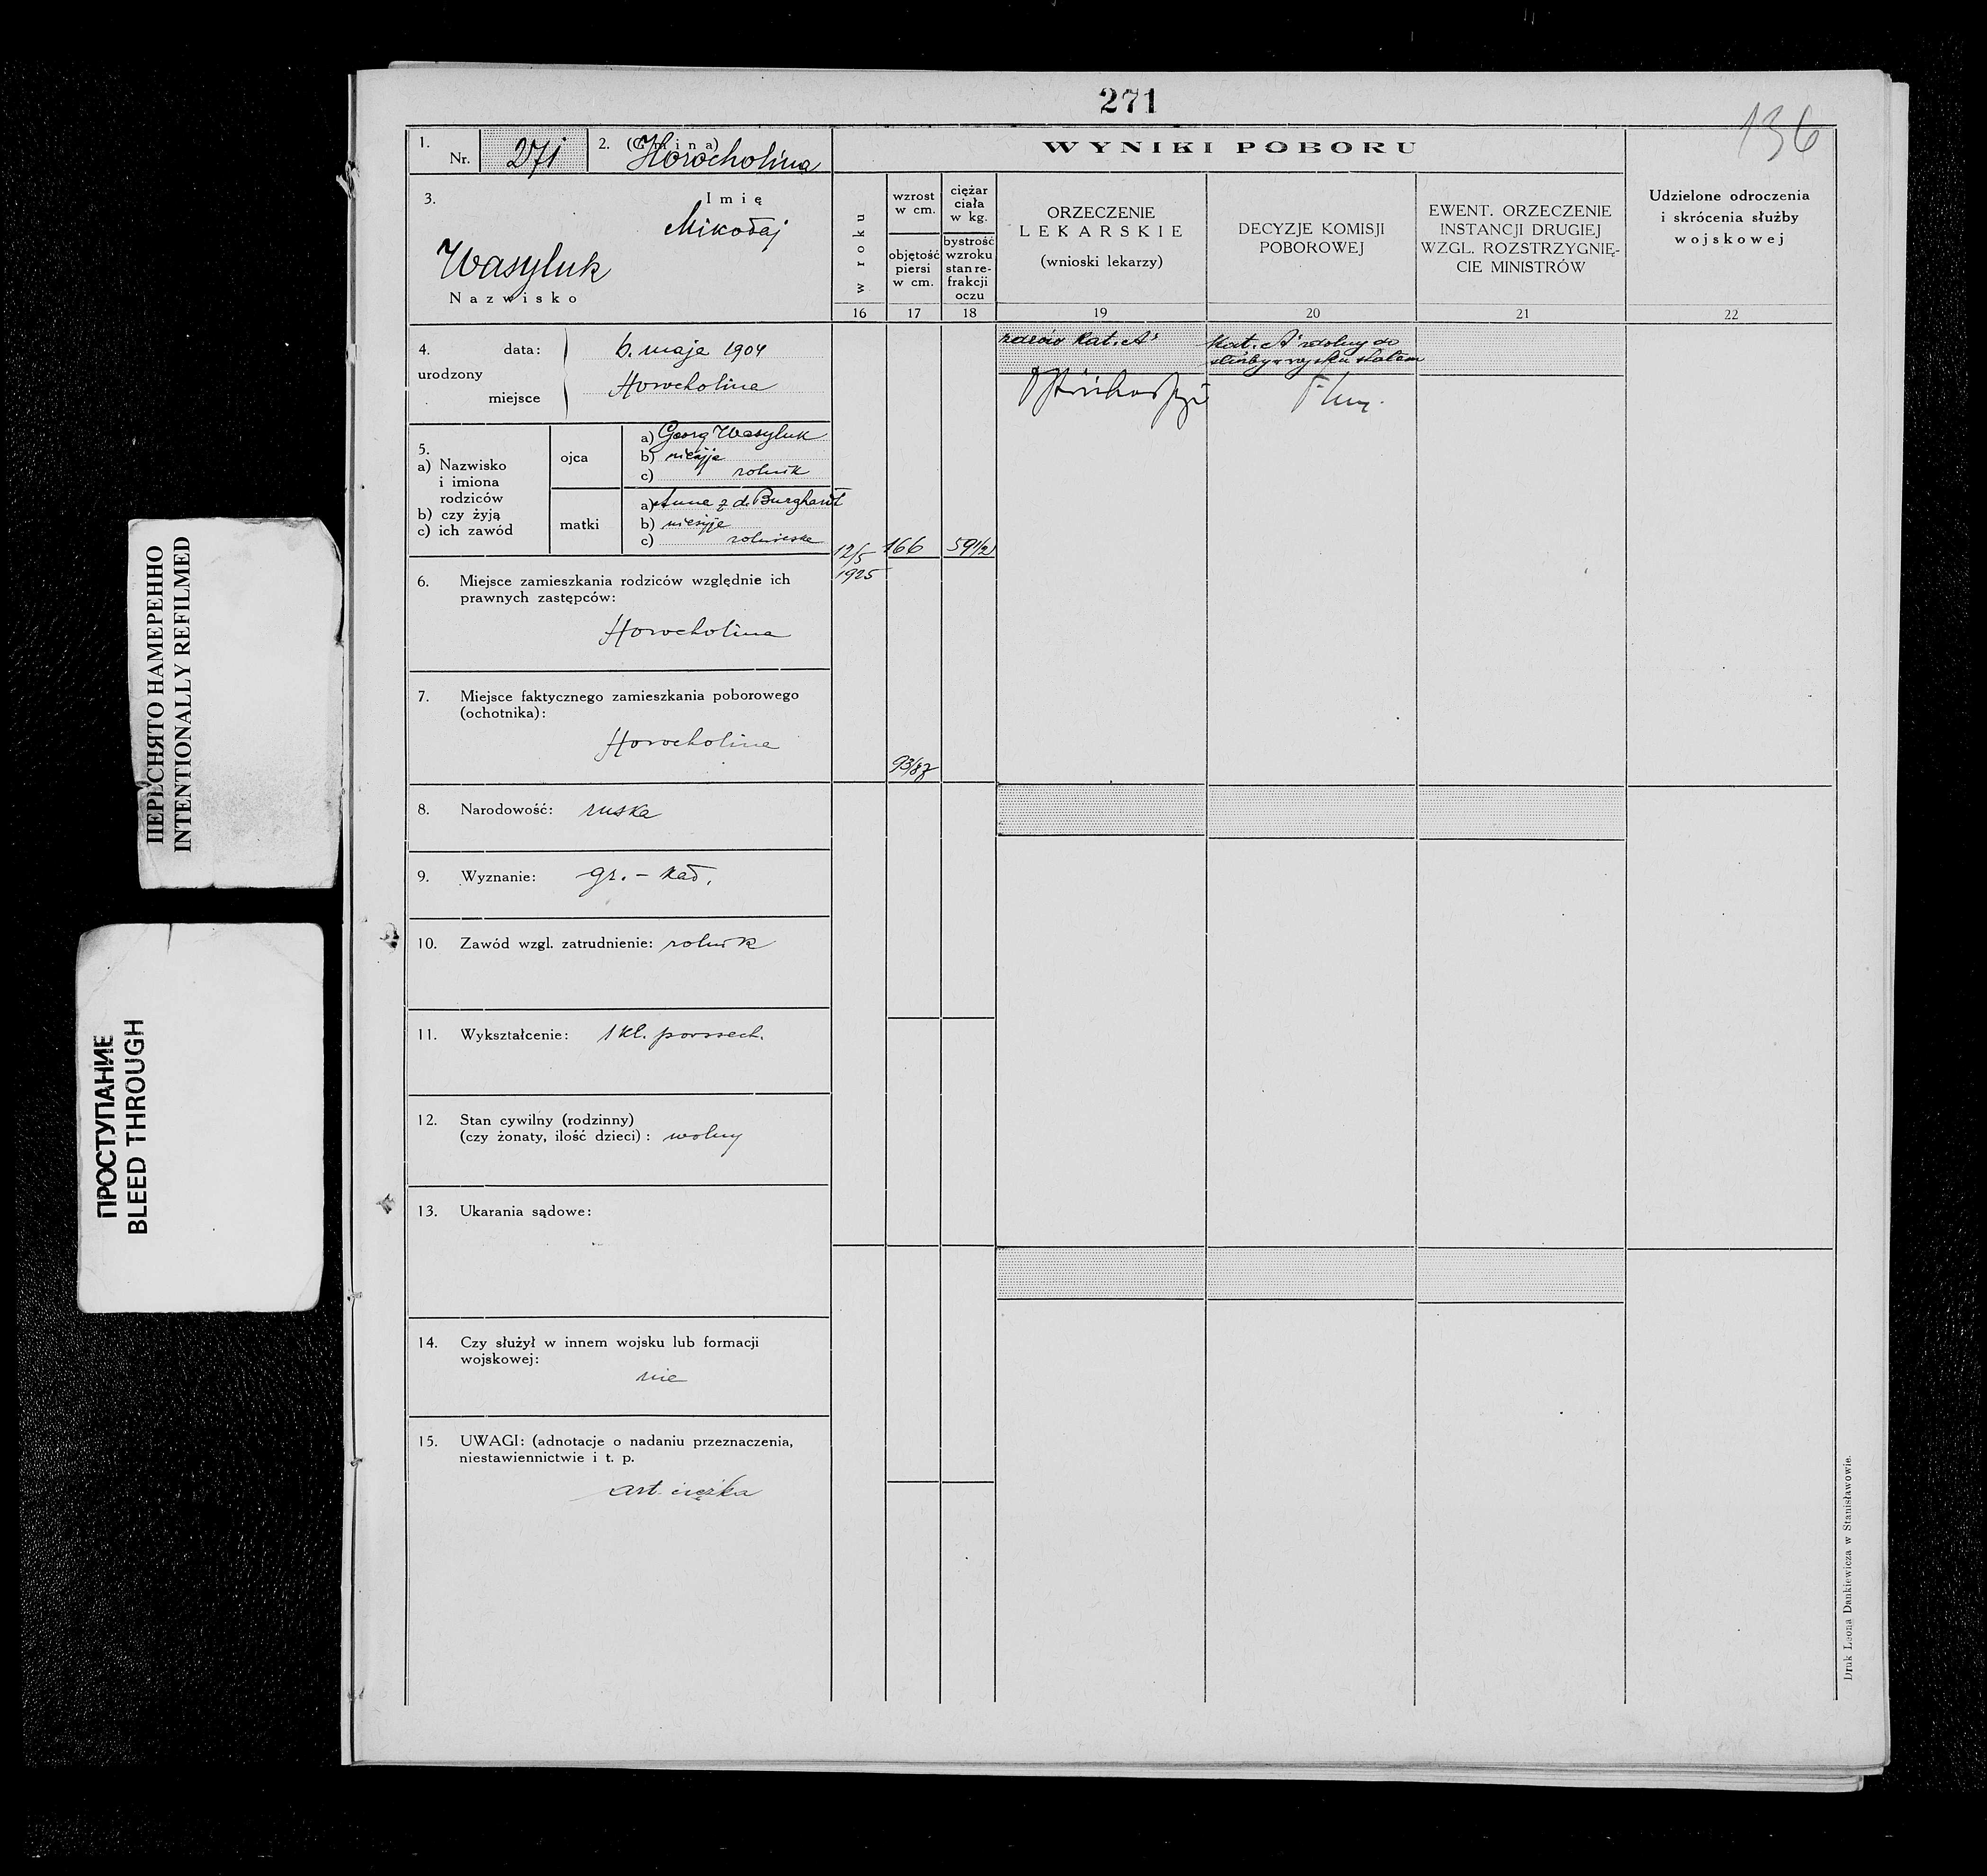 271
136
1.
Nr. 271
2. (Gmina) Horocholina
3. Imię
Mikołaj
Wasyluk
Nazwisko
4. urodzony
data: 6. maja 1904
miejsce Horocholina
5.
a) Nazwisko i imiona rodziców
b) czy żyją
c) ich zawód
ojca
a) Georg Wasyluk
b) nieżyje
c) rolnik
matki
a) Anna z d. Burghardt
b) nieżyje
c)
6. Miejsce zamieszkania rodziców względnie ich
prawnych zastępców:
Horocholina
7. Miejsce faktycznego zamieszkania poborowego
(ochotnika):
Horocholina
8. Narodowość: ruska
9. Wyznanie: gr. - kat.
10. Zawód wzgl. zatrudnienie: rolnik
11. Wykształcenie: 1 kl. powszech.
12. Stan cywilny (rodzinny)
(czy żonaty, ilość dzieci): wolny
13. Ukarania sądowe:
14. Czy służył w innem wojsku lub formacji
wojskowej:
nie
15. UWAGI: (adnotacje o nadaniu przeznaczenia,
niestawiennictwie i t. p.
art. ciężka
WYNIKI POBORU
w roku
16
wzrost
w cm.
objętość
piersi
w cm.
17
ciężar
ciała
w kg.
bystrość
wzroku
stan re-
frakcji
oczu
18
ORZECZENIE
LEKARSKIE
(wnioski lekarzy)
19
DECYZJE KOMISJI
POBOROWEJ
20
EWENT. ORZECZENIE
INSTANCJI DRUGIEJ
WZGL. ROZSTRZYGNIĘ-
CIE MINISTRÓW
21
Udzielone odroczenia
i skrócenia służby
wojskowej
22
12/5
1925
166
59 1/2
93/87
zdrów Kat. A'
Kat. A' zdolny do
służby w wojsku stałem
Druk Leona Dankiewicza w Stanisławowie.
ПЕРЕСНЯТО НАМЕРЕННО
INTENTIONALLY REFILMED
ПРОСТУПАНИЕ
BLEED THROUGH